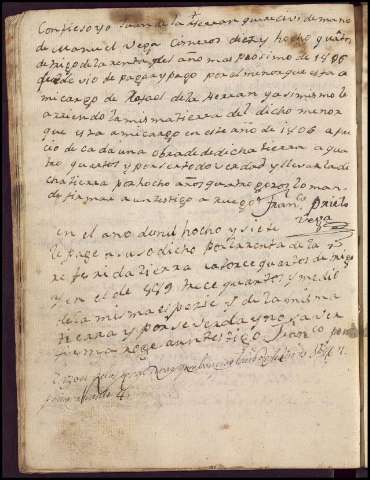 Confieso yo Juan de la Herran que recivi de mano
de Manuel Vega Cisneros diez y hocho quartos
de trigo de la renta del año mas procsimo de 1805
que devio de pagar y pago por el menor que esta a
mi cargo de Rafael de la Herran y asimismo le
arriendo la misma tierra del dicho menor
que esta a mi cargo en este año de 1806 a pre
cio de cada una obrada de dicha tierra a qua
tro quartos y por ser todo verdad y llevar la di
cha tierra por hocho años quatro pares lo man
de firmar a un testigo a ruego Franco Prieto
Vega
en el año de mil hocho y siete
le page a suso dicho por la renta de la re
ferida tierra catorce quartos de trigo
y en el de 809 trece quartos y medio
de la misma especie y de la misma
tierra y por ser verdad y no saver
firmar roge a un testigo Franco